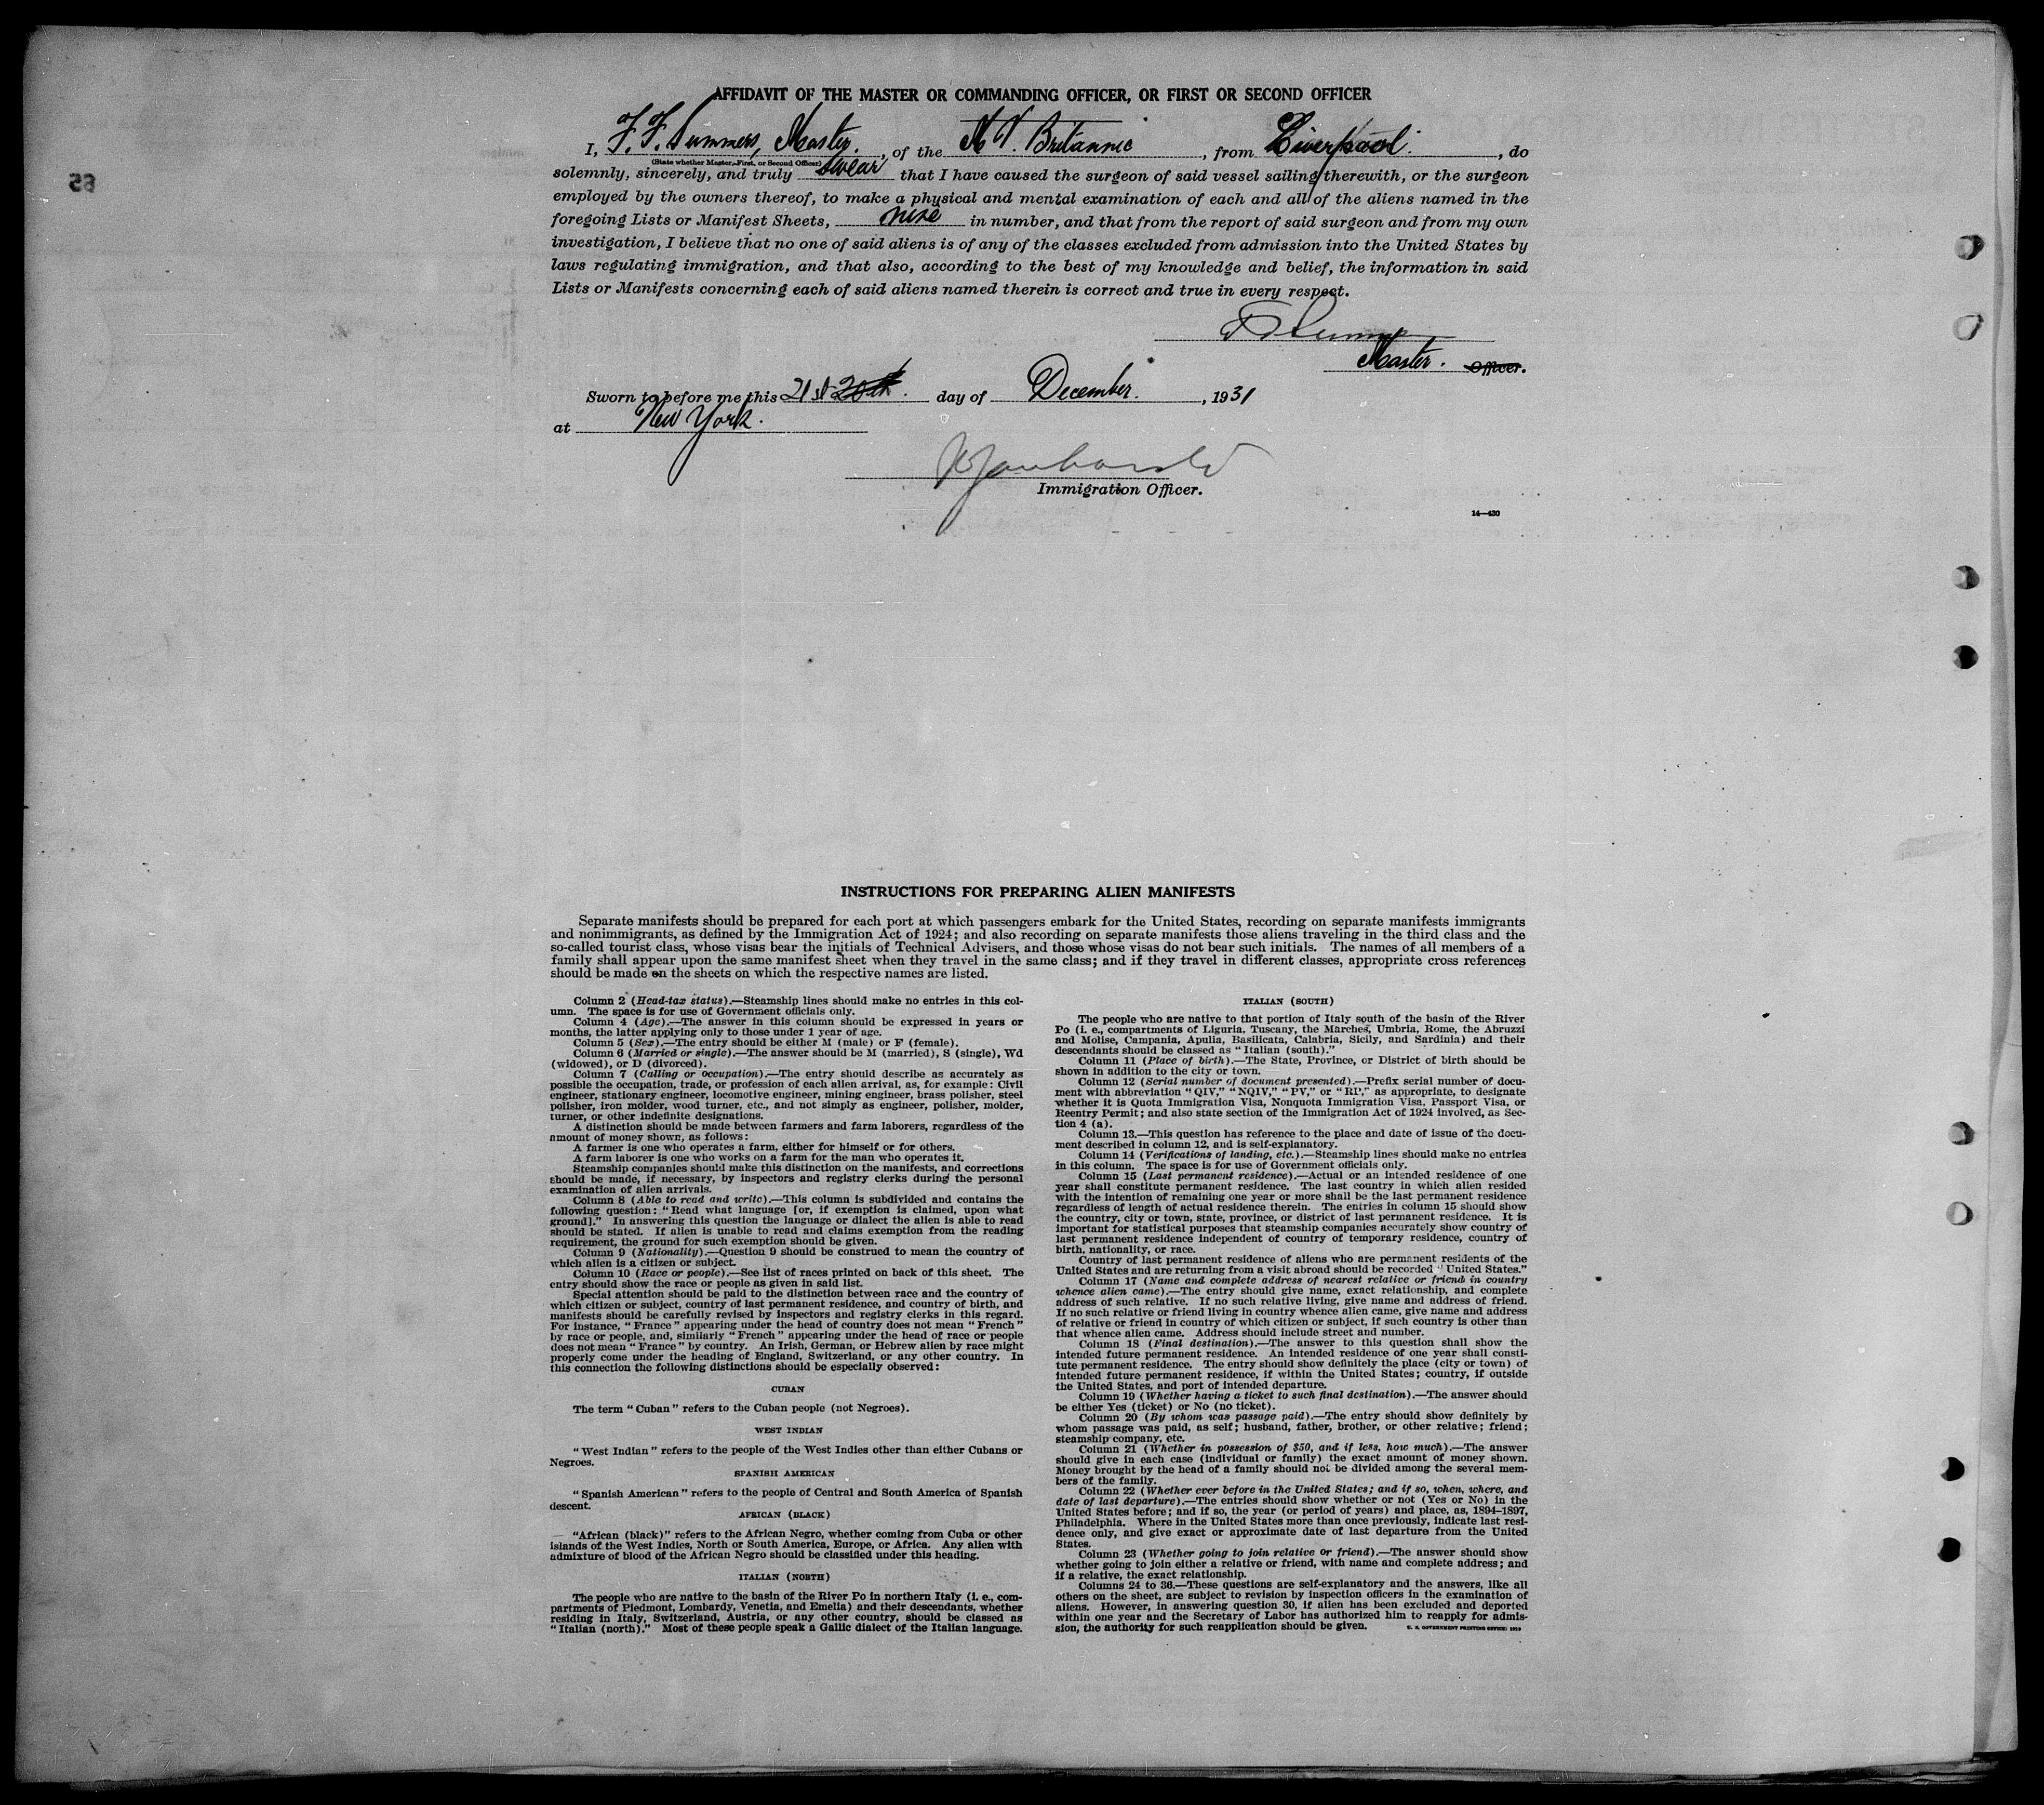 AFFIDAVIT OF THE MASTER OR COMMANDING OFFICER, OR FIRST OR SECOND OFFICER
I, F. F. Summers, Master., of the M V. Britannic, from Liverpool., do
(State whether Master, First, or Second Officer)
solemnly, sincerely, and truly swear that I have caused the surgeon of said vessel sailing therewith, or the surgeon
employed by the owners thereof, to make a physical and mental examination of each and all of the aliens named in the
foregoing Lists or Manifest Sheets, nine in number, and that from the report of said surgeon and from my own
investigation, I believe that no one of said aliens is of any of the classes excluded from admission into the United States by
laws regulating immigration, and that also, according to the best of my knowledge and belief, the information in said
Lists or Manifests concerning each of said aliens named therein is correct and true in every respect.
Master. Officer.
Sworn to before me this 21st 20th. day of December., 1931
at New York.
Immigration Officer.
14—430
INSTRUCTIONS FOR PREPARING ALIEN MANIFESTS
Separate manifests should be prepared for each port at which passengers embark for the United States, recording on separate manifests immigrants
and nonimmigrants, as defined by the Immigration Act of 1924; and also recording on separate manifests those aliens traveling in the third class and the
so-called tourist class, whose visas bear the initials of Technical Advisers, and those whose visas do not bear such initials. The names of all members of a
family shall appear upon the same manifest sheet when they travel in the same class; and if they travel in different classes, appropriate cross references
should be made on the sheets on which the respective names are listed.
Column 2 (Head-tax status).—Steamship lines should make no entries in this col-
umn. The space is for use of Government officials only.
Column 4 (Age).—The answer in this column should be expressed in years or
months, the latter applying only to those under 1 year of age.
Column 5 (Sex).—The entry should be either M (male) or F (female).
Column 6 (Married or single).—The answer should be M (married), S (single), Wd
(widowed), or D (divorced).
Column 7 (Calling or occupation).—The entry should describe as accurately as
possible the occupation, trade, or profession of each alien arrival, as, for example: Civil
engineer, stationary engineer, locomotive engineer, mining engineer, brass polisher, steel
polisher, iron molder, wood turner, etc., and not simply as engineer, polisher, molder,
turner, or other indefinite designations.
A distinction should be made between farmers and farm laborers, regardless of the
amount of money shown, as follows:
A farmer is one who operates a farm, either for himself or for others.
A farm laborer is one who works on a farm for the man who operates it.
Steamship companies should make this distinction on the manifests, and corrections
should be made, if necessary, by inspectors and registry clerks during the personal
examination of alien arrivals.
Column 8 (Able to read and write).—This column is subdivided and contains the
following question: "Read what language [or, if exemption is claimed, upon what
ground]." In answering this question the language or dialect the alien is able to read
should be stated. If alien is unable to read and claims exemption from the reading
requirement, the ground for such exemption should be given.
Column 9 (Nationality).—Question 9 should be construed to mean the country of
which alien is a citizen or subject.
Column 10 (Race or people).—See list of races printed on back of this sheet. The
entry should show the race or people as given in said list.
Special attention should be paid to the distinction between race and the country of
which citizen or subject, country of last permanent residence, and country of birth, and
manifests should be carefully revised by inspectors and registry clerks in this regard.
For instance, "France" appearing under the head of country does not mean "French"
by race or people, and, similarly "French" appearing under the head of race or people
does not mean "France" by country. An Irish, German, or Hebrew alien by race might
properly come under the heading of England, Switzerland, or any other country. In
this connection the following distinctions should be especially observed:
CUBAN
The term "Cuban" refers to the Cuban people (not Negroes).
WEST INDIAN
"West Indian" refers to the people of the West Indies other than either Cubans or
Negroes.
SPANISH AMERICAN
"Spanish American" refers to the people of Central and South America of Spanish
descent.
AFRICAN (BLACK)
"African (black)" refers to the African Negro, whether coming from Cuba or other
islands of the West Indies, North or South America, Europe, or Africa. Any alien with
admixture of blood of the African Negro should be classified under this heading.
ITALIAN (NORTH)
The people who are native to the basin of the River Po in northern Italy (i. e., com-
partments of Piedmont, Lombardy, Venetia, and Emelia) and their descendants, whether
residing in Italy, Switzerland, Austria, or any other country, should be classed as
"Italian (north)." Most of these people speak a Gallic dialect of the Italian language.
ITALIAN (SOUTH)
The people who are native to that portion of Italy south of the basin of the River
Po (i. e., compartments of Liguria, Tuscany, the Marches, Umbria, Rome, the Abruzzi
and Molise, Campania, Apulia, Basilicata, Calabria, Sicily, and Sardinia) and their
descendants should be classed as "Italian (south)."
Column 11 (Place of birth).—The State, Province, or District of birth should be
shown in addition to the city or town.
Column 12 (Serial number of document presented).—Prefix serial number of docu-
ment with abbreviation "QIV," "NQIV," "PV," or "RP," as appropriate, to designate
whether it is Quota Immigration Visa, Nonquota Immigration Visa, Passport Visa, or
Reentry Permit; and also state section of the Immigration Act of 1924 involved, as Sec-
tion 4 (a).
Column 13.—This question has reference to the place and date of issue of the docu-
ment described in column 12, and is self-explanatory.
Column 14 (Verifications of landing, etc.).—Steamship lines should make no entries
in this column. The space is for use of Government officials only.
Column 15 (Last permanent residence).—Actual or an intended residence of one
year shall constitute permanent residence. The last country in which alien resided
with the intention of remaining one year or more shall be the last permanent residence
regardless of length of actual residence therein. The entries in column 15 should show
the country, city or town, state, province, or district of last permanent residence. It is
important for statistical purposes that steamship companies accurately show country of
last permanent residence independent of country of temporary residence, country of
birth, nationality, or race.
Country of last permanent residence of aliens who are permanent residents of the
United States and are returning from a visit abroad should be recorded "United States."
Column 17 (Name and complete address of nearest relative or friend in country
whence alien came).—The entry should give name, exact relationship, and complete
address of such relative. If no such relative living, give name and address of friend.
If no such relative or friend living in country whence alien came, give name and address
of relative or friend in country of which citizen or subject, if such country is other than
that whence alien came. Address should include street and number.
Column 18 (Final destination).—The answer to this question shall show the
intended future permanent residence. An intended residence of one year shall consti-
tute permanent residence. The entry should show definitely the place (city or town) of
intended future permanent residence, if within the United States; country, if outside
the United States, and port of intended departure.
Column 19 (Whether having a ticket to such final destination).—The answer should
be either Yes (ticket) or No (no ticket).
Column 20 (By whom was passage paid).—The entry should show definitely by
whom passage was paid, as self; husband, father, brother, or other relative; friend;
steamship company, etc.
Column 21 (Whether in possession of $50, and if less, how much).—The answer
should give in each case (individual or family) the exact amount of money shown.
Money brought by the head of a family should not be divided among the several mem-
bers of the family.
Column 22 (Whether ever before in the United States; and if so, when, where, and
date of last departure).—The entries should show whether or not (Yes or No) in the
United States before; and if so, the year (or period of years) and place, as, 1894–1897,
Philadelphia. Where in the United States more than once previously, indicate last resi-
dence only, and give exact or approximate date of last departure from the United
States.
Column 23 (Whether going to join relative or friend).—The answer should show
whether going to join either a relative or friend, with name and complete address; and
if a relative, the exact relationship.
Columns 24 to 36.—These questions are self-explanatory and the answers, like all
others on the sheet, are subject to revision by inspection officers in the examination of
aliens. However, in answering question 30, if alien has been excluded and deported
within one year and the Secretary of Labor has authorized him to reapply for admis-
sion, the authority for such reapplication should be given. U. S. GOVERNMENT PRINTING OFFICE: